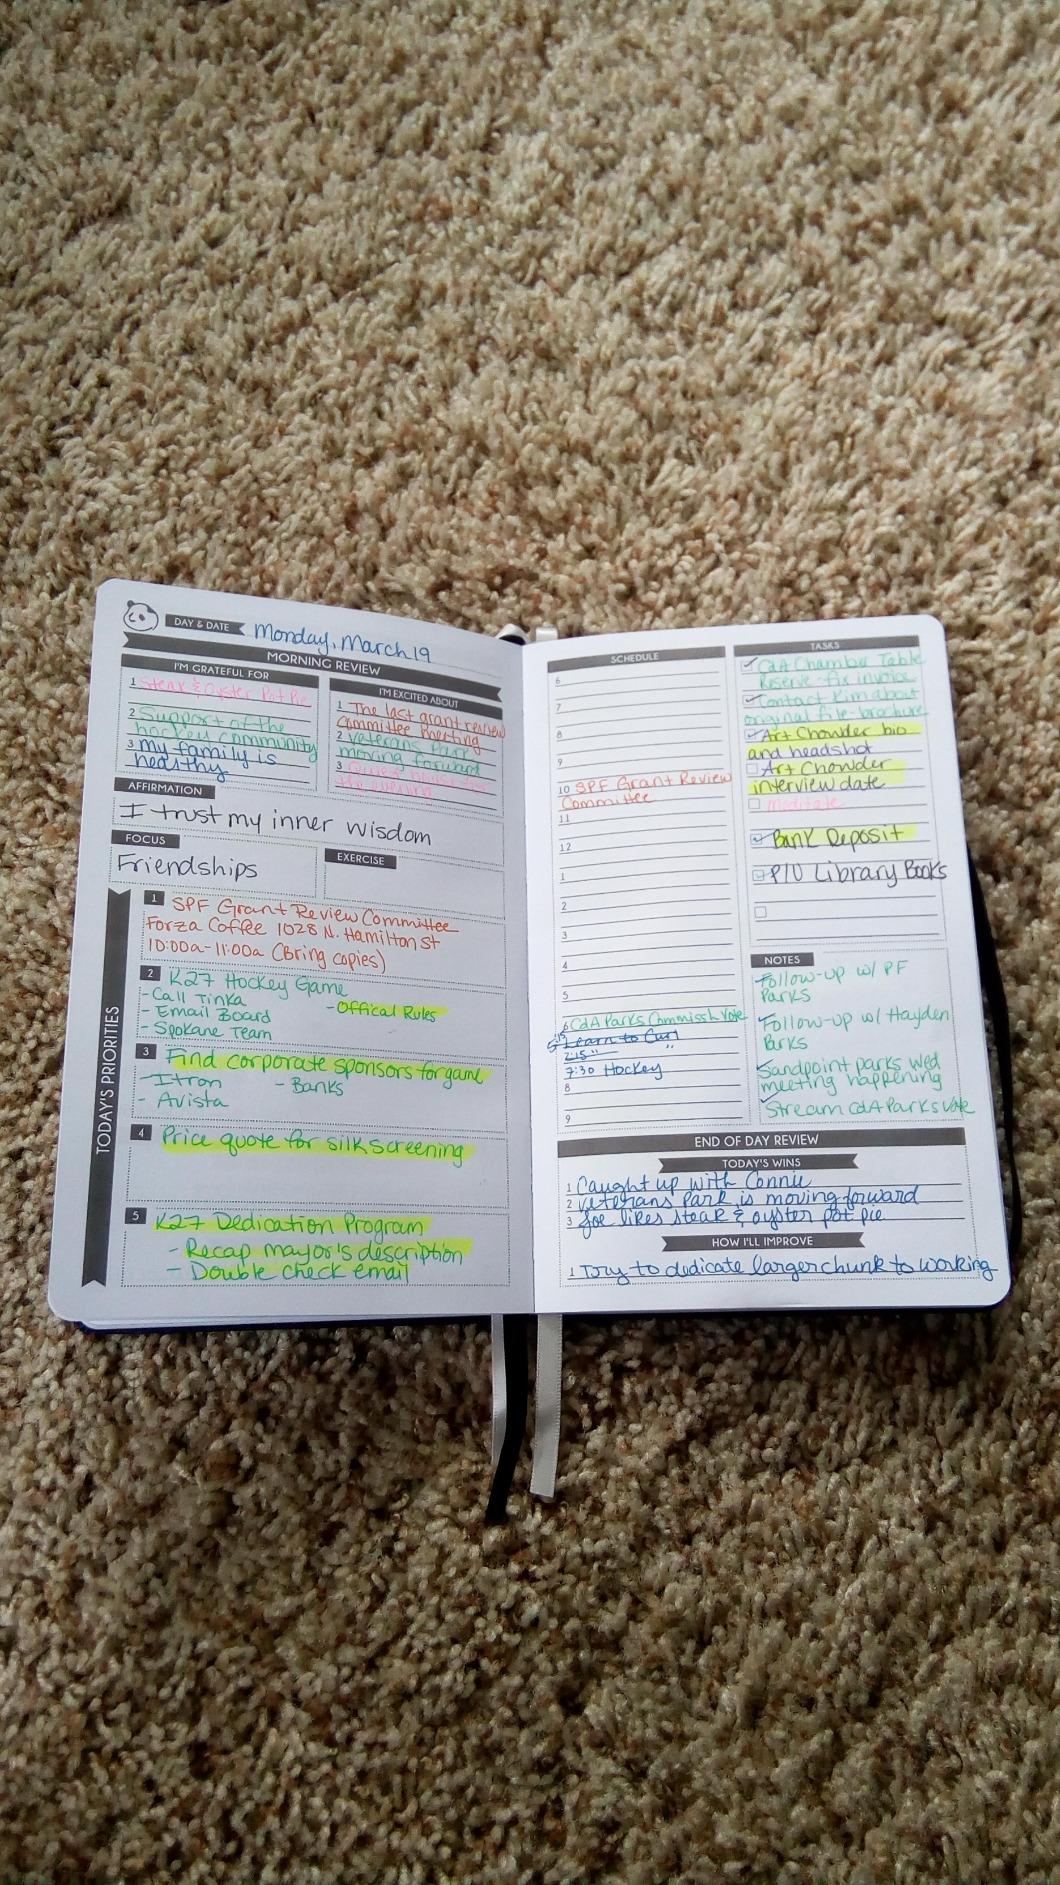 DAY & DATE Monday, March 19
MORNING REVIEW
I'M GRATEFUL FOR
1 Steak & Oyster Pot Pie
2 Support of the
hockey community
3 my family is
healthy
I'M EXCITED ABOUT
1 The last grant review
committee meeting
2 Veterans Park
moving forward
3 Quiet
the evening
AFFIRMATION
I trust my inner wisdom
FOCUS
Friendships
EXERCISE
TODAY'S PRIORITIES
1 SPF Grant Review Committee
Forza Coffee 1028 N. Hamilton St
10:00a-11:00a (Bring copies)
2 K27 Hockey Game
- Call Tinka
- Offical Rules
- Email Board
- Spokane Team
3 Find corporate sponsors for game
- Itron
- Banks
- Avista
4 Price quote for silk screening
5 K27 Dedication Program
- Recap mayor's description
- Double check email
SCHEDULE
6
7
8
9
10 SPF Grant Review
Committee
11
12
1
2
3
4
5
6 CdA Parks Commissh Vote
5:15 Learn to Curl
7:15 " "
7:30 Hockey
8
9
TASKS
CdA Chamber Table
Reserve - fix invoice
Contact Kim about
original file - brochure
Art Chowder bio
and headshot
Art Chowder
interview date
meditate
Bank Deposit
P/U Library Books
NOTES
Follow-up w/ PF
Parks
Follow-up w/ Hayden
Parks
Sandpoint parks wed
meeting happening
Stream CdA Parks Vote
END OF DAY REVIEW
TODAY'S WINS
1 Caught up with Connie
2 Veterans Park is moving forward
3 Joe likes steak & oyster pot pie
HOW I'LL IMPROVE
1 Try to dedicate larger chunk to working